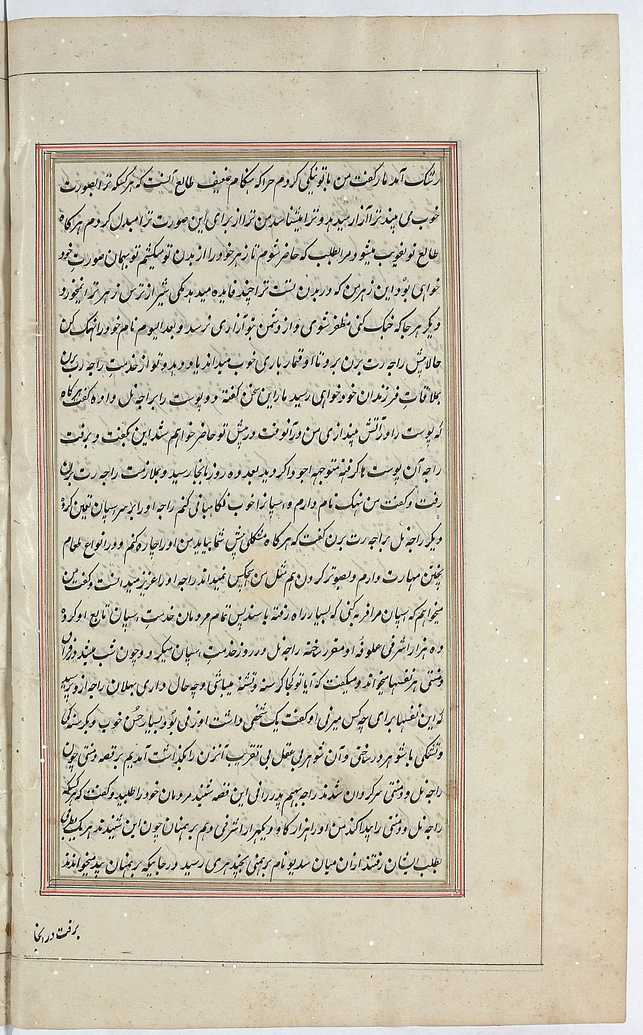 رشک آمد مار گفت من با تو نیکی کردم چرا که هنگام ضعیف طالع آنست که هر کسکه ترا بصورت
خوب می بیند ترا آزار میدهد و ترا میشناسد من ترا از برای این صورت ترا مبدل کردم هرگاه
طالع تو خوب میشود مرا طلب که حاضر شوم تا زهر خود را از بدن تو میکشم تو بهمان صورت خود
خواهی بود و این زهر من که در بدن تست ترا چند فایده میدهد یکی شیر از ترس زهر ترا نمیخورد
دیگر هر جا که جنگ کنی مظفر شوی و از دشمن تو آزاری نرسد و بعد الیوم نام خود را نهک کن
حالا پیش راجه رت برن برو تا او قمار بازی خوب میداند یاد بدید و تو از خدمت راجه رت برن
بملاقات فرزندان خود خواهی رسید مار این سخن گفته دو پوست را براجه نل داده گفت هرگاه
که پوست را در آتش بیندازی من در آنوقت در پیش تو حاضر خواهم شد این بگفت و برفت
راجه آن پوستها گرفته متوجه اجودا گردید بعد ده روز بانجا رسید و بملازمت راجه رت برن
رفت و گفت من نهک نام دارم و اسپانرا خوب نگاهبانی کنم راجه او را بر سر اسپان تعین کرد
دیگر راجه نل براجه رت برن گفت که هرگاه مشکلی پیش شما بیاید من او را چاره کنم و در انواع طعام
پختن مهارت دارم و تصویر کردن هم مثل من هیچکس نمیداند راجه او را عزیز میداشت و گفت من
میخواهم که اسپان مرا فربه کنی که بسیار راه رفته باشند پس تمام مردمان خدمت اسپان تابع او کرده
ده هزار اشرفی علوفه او مقرر ساخته راجه نل در روز خدمت اسپان میکرد و چون شب میشد در فراق
دمنتی هر نفسها میخواند و میگفت که آیا تو کجا گرسنه و تشنه میباشی و چه حال داری بهلان راجه از و پرسید
که این نفسها برای چه کس میزنی او گفت یک شخصی داشت او زنی بود بسیار حسن خوب و گرسنگی
و تشنگی با شوهر در ساختی و آن شوهر بی عقل بی تقریب آنزن را بگذاشت آمدیم بر قصه دمنتی چون
راجه نل و دمنتی سرگردان شدند راجه بهیم پدر رانی این قصه شنید مردمان خود را طلبید و گفت که هر که
راجه نل و دمنتی را پیدا کند من او را هزار گاو و یکهزار اشرفی دهم برهمنان چون این شنیدند هر یک بطرفی
بطلب ایشان رفتند از آن میان سدیو نام برهمنی بچندهری رسید در جائیکه برهمنان بید میخواندند
برفت در آنجا